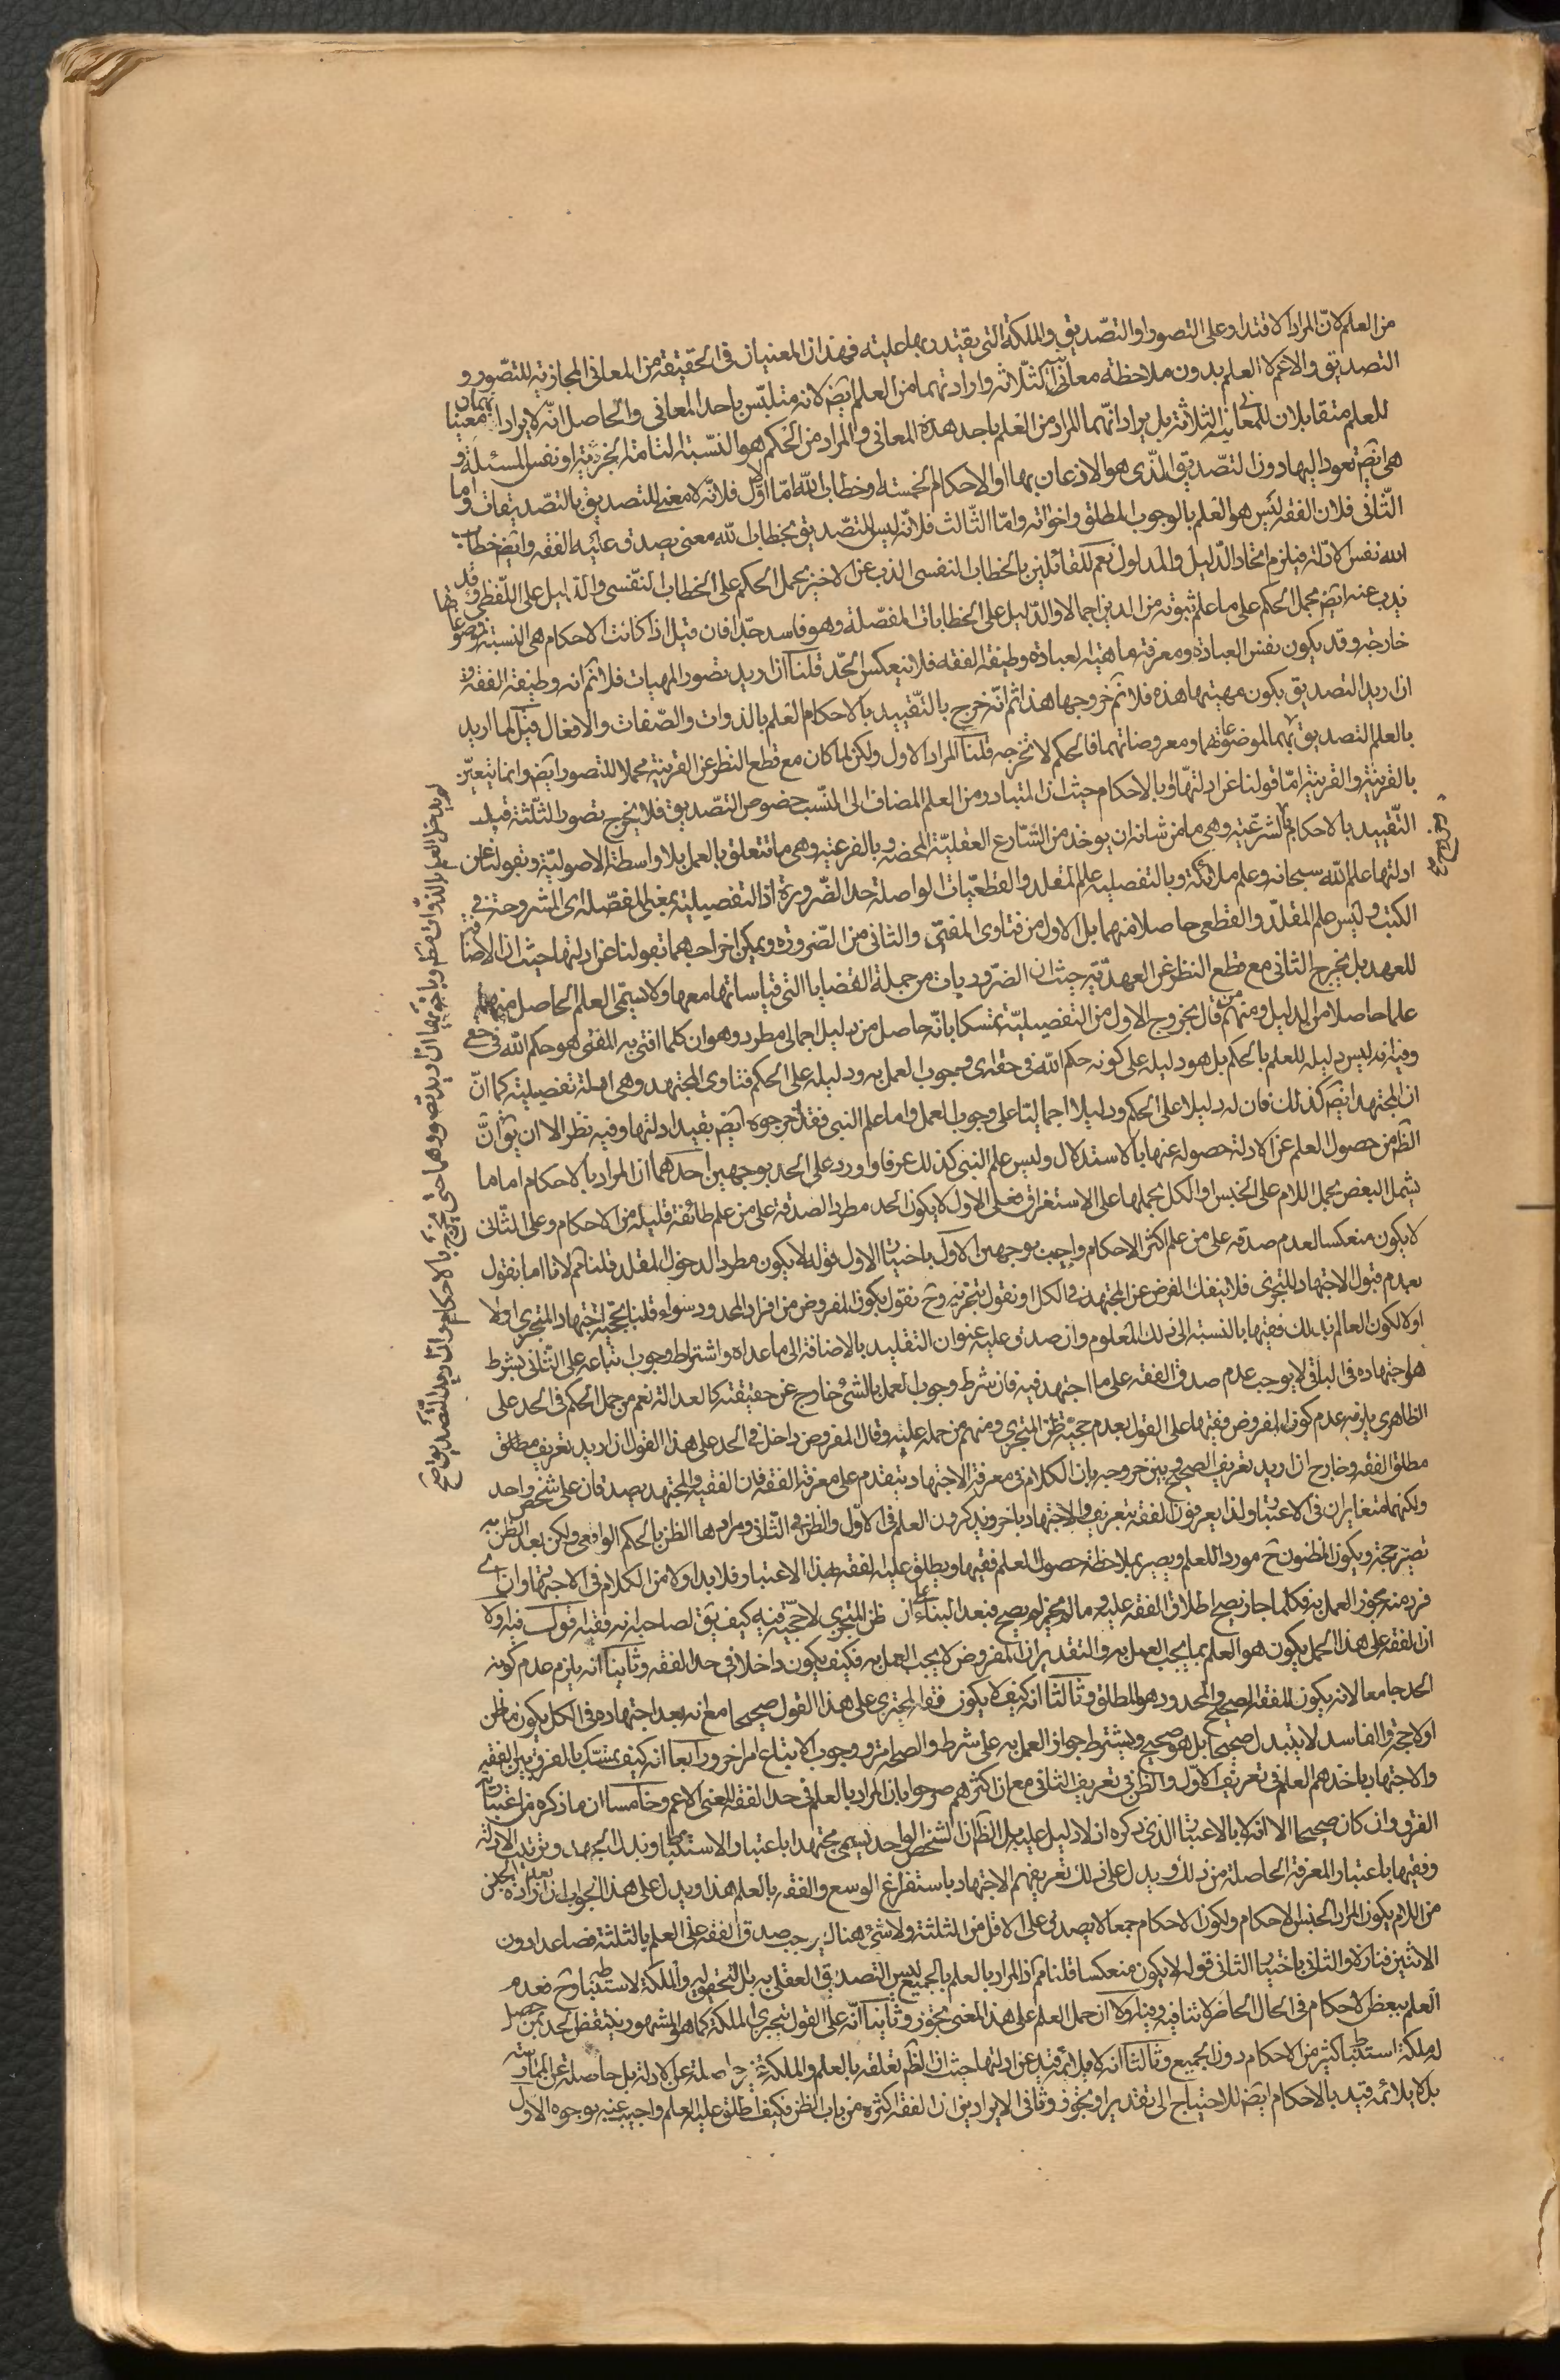 من العلم لانّ المراد الاقتدار على التصور او التصديق والملكة التى يقتدر بها عليه فهذان المعنيان فى الحقيقة من المعانى المجازية للتصور و
التصديق والاعم لا العلم بدون ملاحظة معانيه الثلاثة وارادتهما من العلم ايضا لانه متلبّس باحد المعانى والحاصل انّه لا يراد انهما معنيان
للعلم متقابلان للمعانيه الثلاثة بل يراد انهما المراد من العلم باحد هذه المعانى والمراد من الحكم هو النسبة التامة الخبرية او نفس المسئلة و
هى ايضا تعود اليها دون التصديق الذى هو الاذعان بها او الاحكام الخمسة او خطاب الله امّا الاول فلانّه لا معنى للتصديق بالتصديقات واما
الثانى فلان الفقه ليس هو العلم بالوجوب المطلق واخواته وامّا الثالث فلانّه ليس للتصديق بخطاب الله معنى يصدق عليه الفقه وايضا خطاب
الله نفس الادلّة فيلزم اتحاد الدليل والمدلول نعم للقائلين بالخطاب النفسى الذب عن الاخير بحمل الحكم على الخطاب النفسى والدليل على اللفظى وقد
يذب عنه ايضا بحمل الحكم على ما علم ثبوته من الدين اجمالا والدليل على الخطابات المفصلة وهو فاسد جدّا فان قيل اذا كانت الاحكام هى النسبة فموضوعاتها
خارجة وقد يكون نفس العبادة ومعرفة ماهية العبادة وظيفة الفقه فلا ينعكس الحدّ قلنا ان اريد تصور المهيات فلا نم انه وظيفة الفقه و
ان اريد التصديق بكون مهيتها هذه فلا نم خروجها هذا ثم انّه خرج بالتقييد بالاحكام العلم بالذوات والصفات والافعال قيل لما اريد
بالعلم التصديق بهما الموضوعاتها ومعروضاتهما فالحكم لا تخرجه قلنا المراد الاول ولكن لما كان مع قطع النظر عن القرينة محملا للتصور ايضا وانما يتعين
بالقرينة والقرينة امّا قولنا عن ادلتها او بالاحكام حيث ان المتبادر من العلم المضاف الى النسب خصوص التصديق فلا يخرج تصور الثلثة قبل
التقييد بالاحكام بالشرعية وهى ما من شانه ان يوخذ من الشارع العقلية المحضة وبالفرعية وهى ما تتعلق بالعمل بلا واسطة الاصولية وبقولنا عن
ادلتها علم الله سبحانه وعلم ملائكة وبالتفصيلية علم المقلد والقطعيات الواصلة حد الضرورة اذ التفصيلية بمعنى المفصلة اى المشروحة فى
الكتب وليس علم المقلد والقطعى حاصلا منهما بل الاول من فتاوى المفتى والثانى من الضرورة ويمكن اخراجهما بقولنا عن ادلتها حيث ان الاضافة
للعهد بل يخرج الثانى مع قطع النظر عن العهدية حيث ان الضروريات من جملة القضايا التى قياساتها معها ولا يسمى العلم الحاصل منها
علما حاصلا من الدليل ومنهم من قال بخروج الاول من التفصيلية تمسكا بانّه حاصل من دليل اجمالى مطرد وهو ان كلما افتى به المفتى فهو حكم الله فى حقى
وفيه انه ليس دليله للعلم بالحكم بل هو دليله على كونه حكم الله فى حقه اى وجوب العمل به ودليله على الحكم فتاوى المجتهد وهى ادلة تفصيلية كما انّ
ان المجتهد ايضا كذلك فان له دليلا على الحكم ودليلا اجماليا على وجوب العمل واما علم النبى فقد اخرجوه ايضا بقيد ادلتها وفيه نظر الا ان يق انّ
الظ من حصول العلم عن الادلة حصوله عنها بالاستدلال وليس علم النبى كذلك عرفا واورد على الحد بوجهين احدهما ان المراد بالاحكام اما ما
يشمل البعض بحمل اللام على الجنس او الكل بحملها على الاستغراق فعلى الاول لا يكون الحد مطردا لصدقه على من علم طائفة قليلة من الاحكام وعلى الثانى
لا يكون منعكسا لعدم صدقه على من علم اكثر الاحكام واجيب بوجهين الاول باختيار الاول قوله لا يكون مطردا لدخول المقلد قلنا نم لانا اما نقول
بعدم قبول الاجتهاد للتجزى فلا ينفك الفرض عن المجتهد فى الكل او نقول بتجزيه وح نقول بكون المفروض من افراد المحدود سواء قلنا بحجية اجتهاد المتجزى اولا
اولا لكون العالم بذلك فقيها بالنسبة الى ذلك المعلوم وان صدق عليه عنوان التقليد بالاضافة الى ما عداه واشتراط وجوب اتباعه على الثانى بشرط
هو اجتهاده فى الباقى لا يوجب عدم صدق الفقه على ما اجتهد فيه فان شرط وجوب العمل بالشئ خارج عن حقيقته كالعدالة نعم من حمل الحكم فى الحد على
الظاهرى يلزمه عدم كون المفروض فقيها على القول بعدم حجية ظن المتجزى ومنهم من حمله عليه وقال المفروض داخل فى الحد على هذا القول ان اريد تعريف مطلق
مطلق الفقه وخارج ان اريد تعريف الصحيح وبين خروجه بان الكلام فى معرفة الاجتهاد يتقدم على معرفة الفقه فان الفقيه والمجتهد يصدقان على شخص واحد
ولكنهما متغايران فى الاعتبار ولذا يعرفون الفقه بتعريف والاجتهاد باخر ويذكرون العلم فى الاول والظن فى الثانى ومرادهما الظن بالحكم الواقعى ولكن بعد الظن به
تصير حجة ويكون المظنون ح موردا للعلم ويصير بملاحظة حصول العلم فقيها ويطلق عليه الفقه بهذا الاعتبار فلا بد اولا من الكلام فى الاجتهاد وان اى
فرد منه مجوز العمل به فكلما جاز يصح اطلاق الفقه عليه وما لم يجز لم يصح فبعد البناء على ان ظن المتجزى لا حجية فيه كيف يق لصاحبه انه فقيه اقول فيه اولا
ان الفقه على هذا الحمل يكون هو العلم بما يجب العمل به والتقدير ان المفروض لا يجب العمل به فكيف يكون داخلا فى حد الفقه وثانيا انه يلزم عدم كونه
الحد جامعا لانه يكون للفقه الصحيح والمحدود هو المطلق وثالثا انه كيف لا يكون فقه المتجزى على هذا القول صحيحا مع انه بعد اجتهاده فى الكل يكون ما ظن
اولا حجة والفاسد لا يتبدل صحيحا بل هو صحيح ويشترط جواز العمل به على شرط والصحة امر ووجوب الاتباع امر اخر ورابعا انه كيف يتمسك بالفرق بين الفقه
والاجتهاد باخذهم العلم فى تعريف الاول والظن فى تعريف الثانى مع ان اكثرهم صرحوا بان المراد بالعلم فى حد الفقه المعنى الاعم وخامسا ان ما ذكره من اعتبار
الفرق وان كان صحيحا الا انه لا بالاعتبار الذى ذكره اذ لا دليل عليه بل الظ ان الشخص الواحد يسمى مجتهدا باعتبار الاستنباط وبذل الجهد وترتيب الادلة
وفقيها باعتبار المعرفة الحاصلة من ذلك ويدل على ذلك تعريفهم الاجتهاد باستفراغ الوسع والفقه بالعلم هذا ويدل على هذا الجواب ان ارادة الجنس
من اللام يكون المراد الجنس الاحكام ولكون الاحكام جمعا لا يصدق على الاقل من الثلثة ولا شئ هناك يوجب صدق الفقه على العلم بالثلثة فصاعدا دون
الاثنين فنارة والثانى باختيار الثانى قوله لا يكون منعكسا قلنا نم اذ المراد بالعلم بالجميع ليس التصديق الفعلى به بل التهيؤ له والملكة لاستنباطه ح فعدم
العلم ببعض الاحكام فى الحال الحاضر لا تنافيه وفيه اولا ان حمل العلم على هذا المعنى مجوز وثانيا انّه على القول بتجزى الملكة كما هو المشهور ينتقض الحد بمن حصل
له ملكة استنباط كثير من الاحكام دون الجميع وثالثا انه لا يلائمه قيد عن ادلتها حيث ان الظ تعلقه بالعلم والملكة غير حاصلة عن الادلة بل حاصلة عن الممارسة
بل لا يلائمه قيد بالاحكام ايضا للاحتياج الى تقدير او تجوز وثانى الايرادين ان الفقه اكثره من باب الظن فكيف اطلق عليه العلم واجيب عنه بوجوه الاول